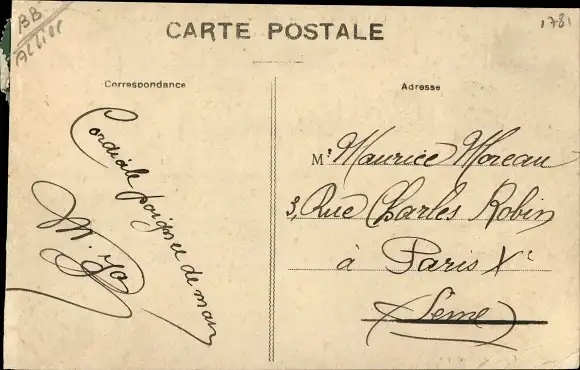 BB
Allier
1781
CARTE POSTALE
Correspondance
Adresse
Cordiale poignée de main
Mr Maurice Moreau
3, Rue Charles Robin
à Paris Xe
Seine